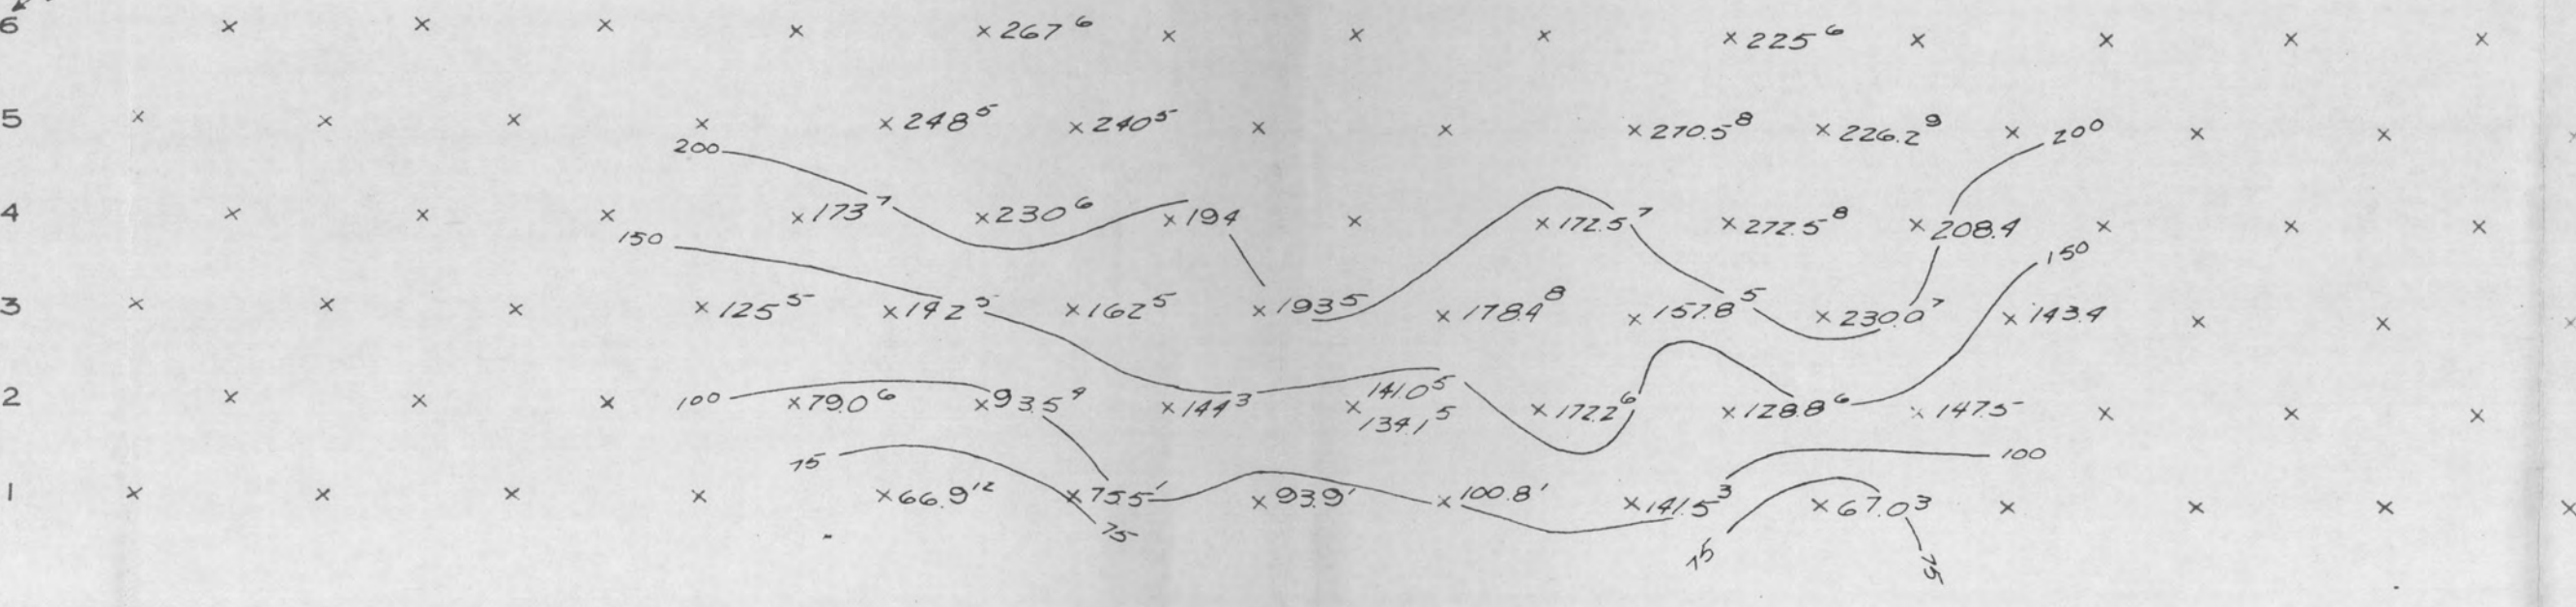 6 × × × × × 267⁶ × × × × 225⁶ × × × ×
5 × × × × × 248⁵ × 240⁵ × × × 270.5⁸ × 226.2⁹ × 200 × ×
200
4 × × × × 173⁷ × 230⁶ × 194 × × 172.5⁷ × 272.5⁸ × 208.4 × × ×
150 150
3 × × × × 125⁵ × 142⁵ × 162⁵ × 193⁵ × 178.4⁸ × 157.8⁵ × 230.0⁷ × 143.4 × × ×
141.0⁵
2 × × × 100 × 79.0⁶ × 93.5⁴ × 144³ × × 172.2⁶ × 128.8⁶ × 147.5 × × ×
134.1⁵
75 100
1 × × × × × 66.9¹² × 75.5¹ × 93.9¹ × 100.8¹ × 141.5³ × 67.0³ × × × ×
75 75 75